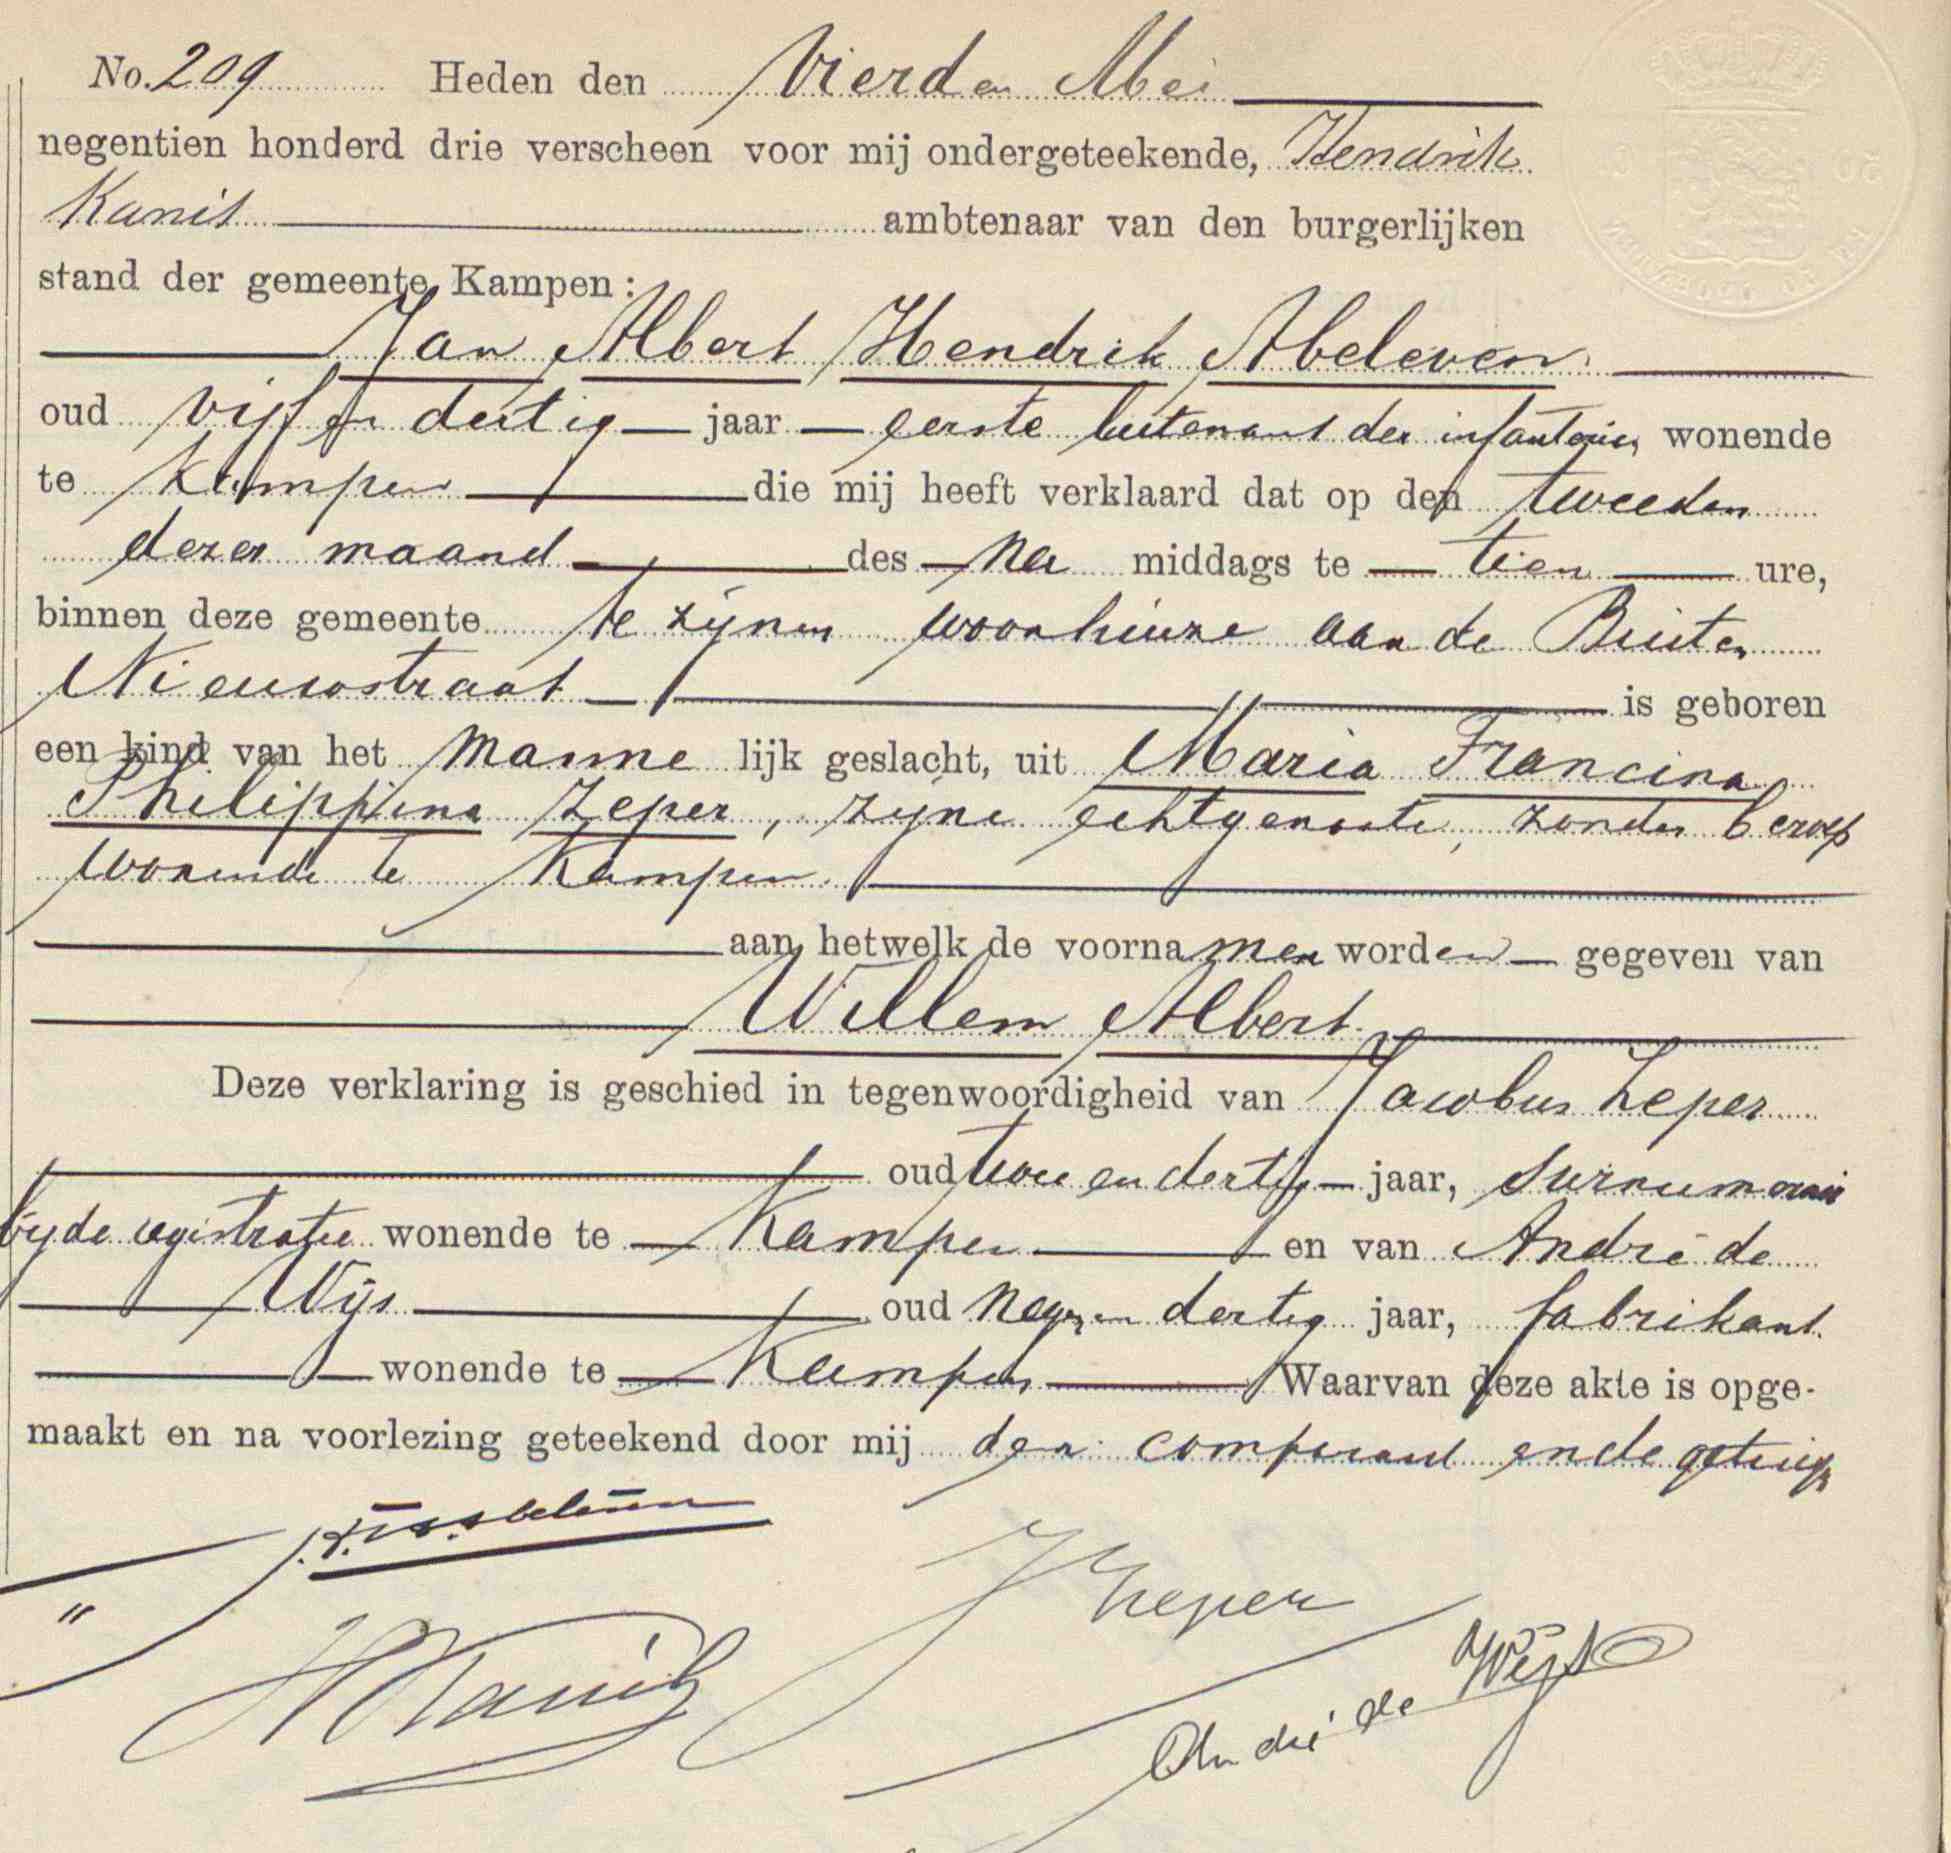 No. 209 Heden den Vierden Mei
negentien honderd drie verscheen voor mij ondergeteekende, Hendrik
Kanis ambtenaar van den burgerlijken
stand der gemeente Kampen:
Jan Albert Hendrik Abeleven
oud vijf en dertig jaar eerste luitenant der infanterie, wonende
te Kampen die mij heeft verklaard dat op den tweeden
dezer maand des na middags te tien ure,
binnen deze gemeente te zijnen woonhuize aan de Buiten
Nieuwstraat is geboren
een kind van het manne lijk geslacht, uit Maria Francina
Philippina Zeper, zijne echtgenoote, zonder beroep
wonende te Kampen.
aan hetwelk de voornamen worden gegeven van
Willem Albert.
Deze verklaring is geschied in tegenwoordigheid van Jacobus Zeper
oud twee en dertig jaar, surnumerair
bij de registratie wonende te Kampen en van André de
Wijs oud negen en dertig jaar, fabrikant.
wonende te Kampen Waarvan deze akte is opge-
maakt en na voorlezing geteekend door mij den comparant en de getuigen
Abeleven
J Zeper
H Kanis
André de Wijs